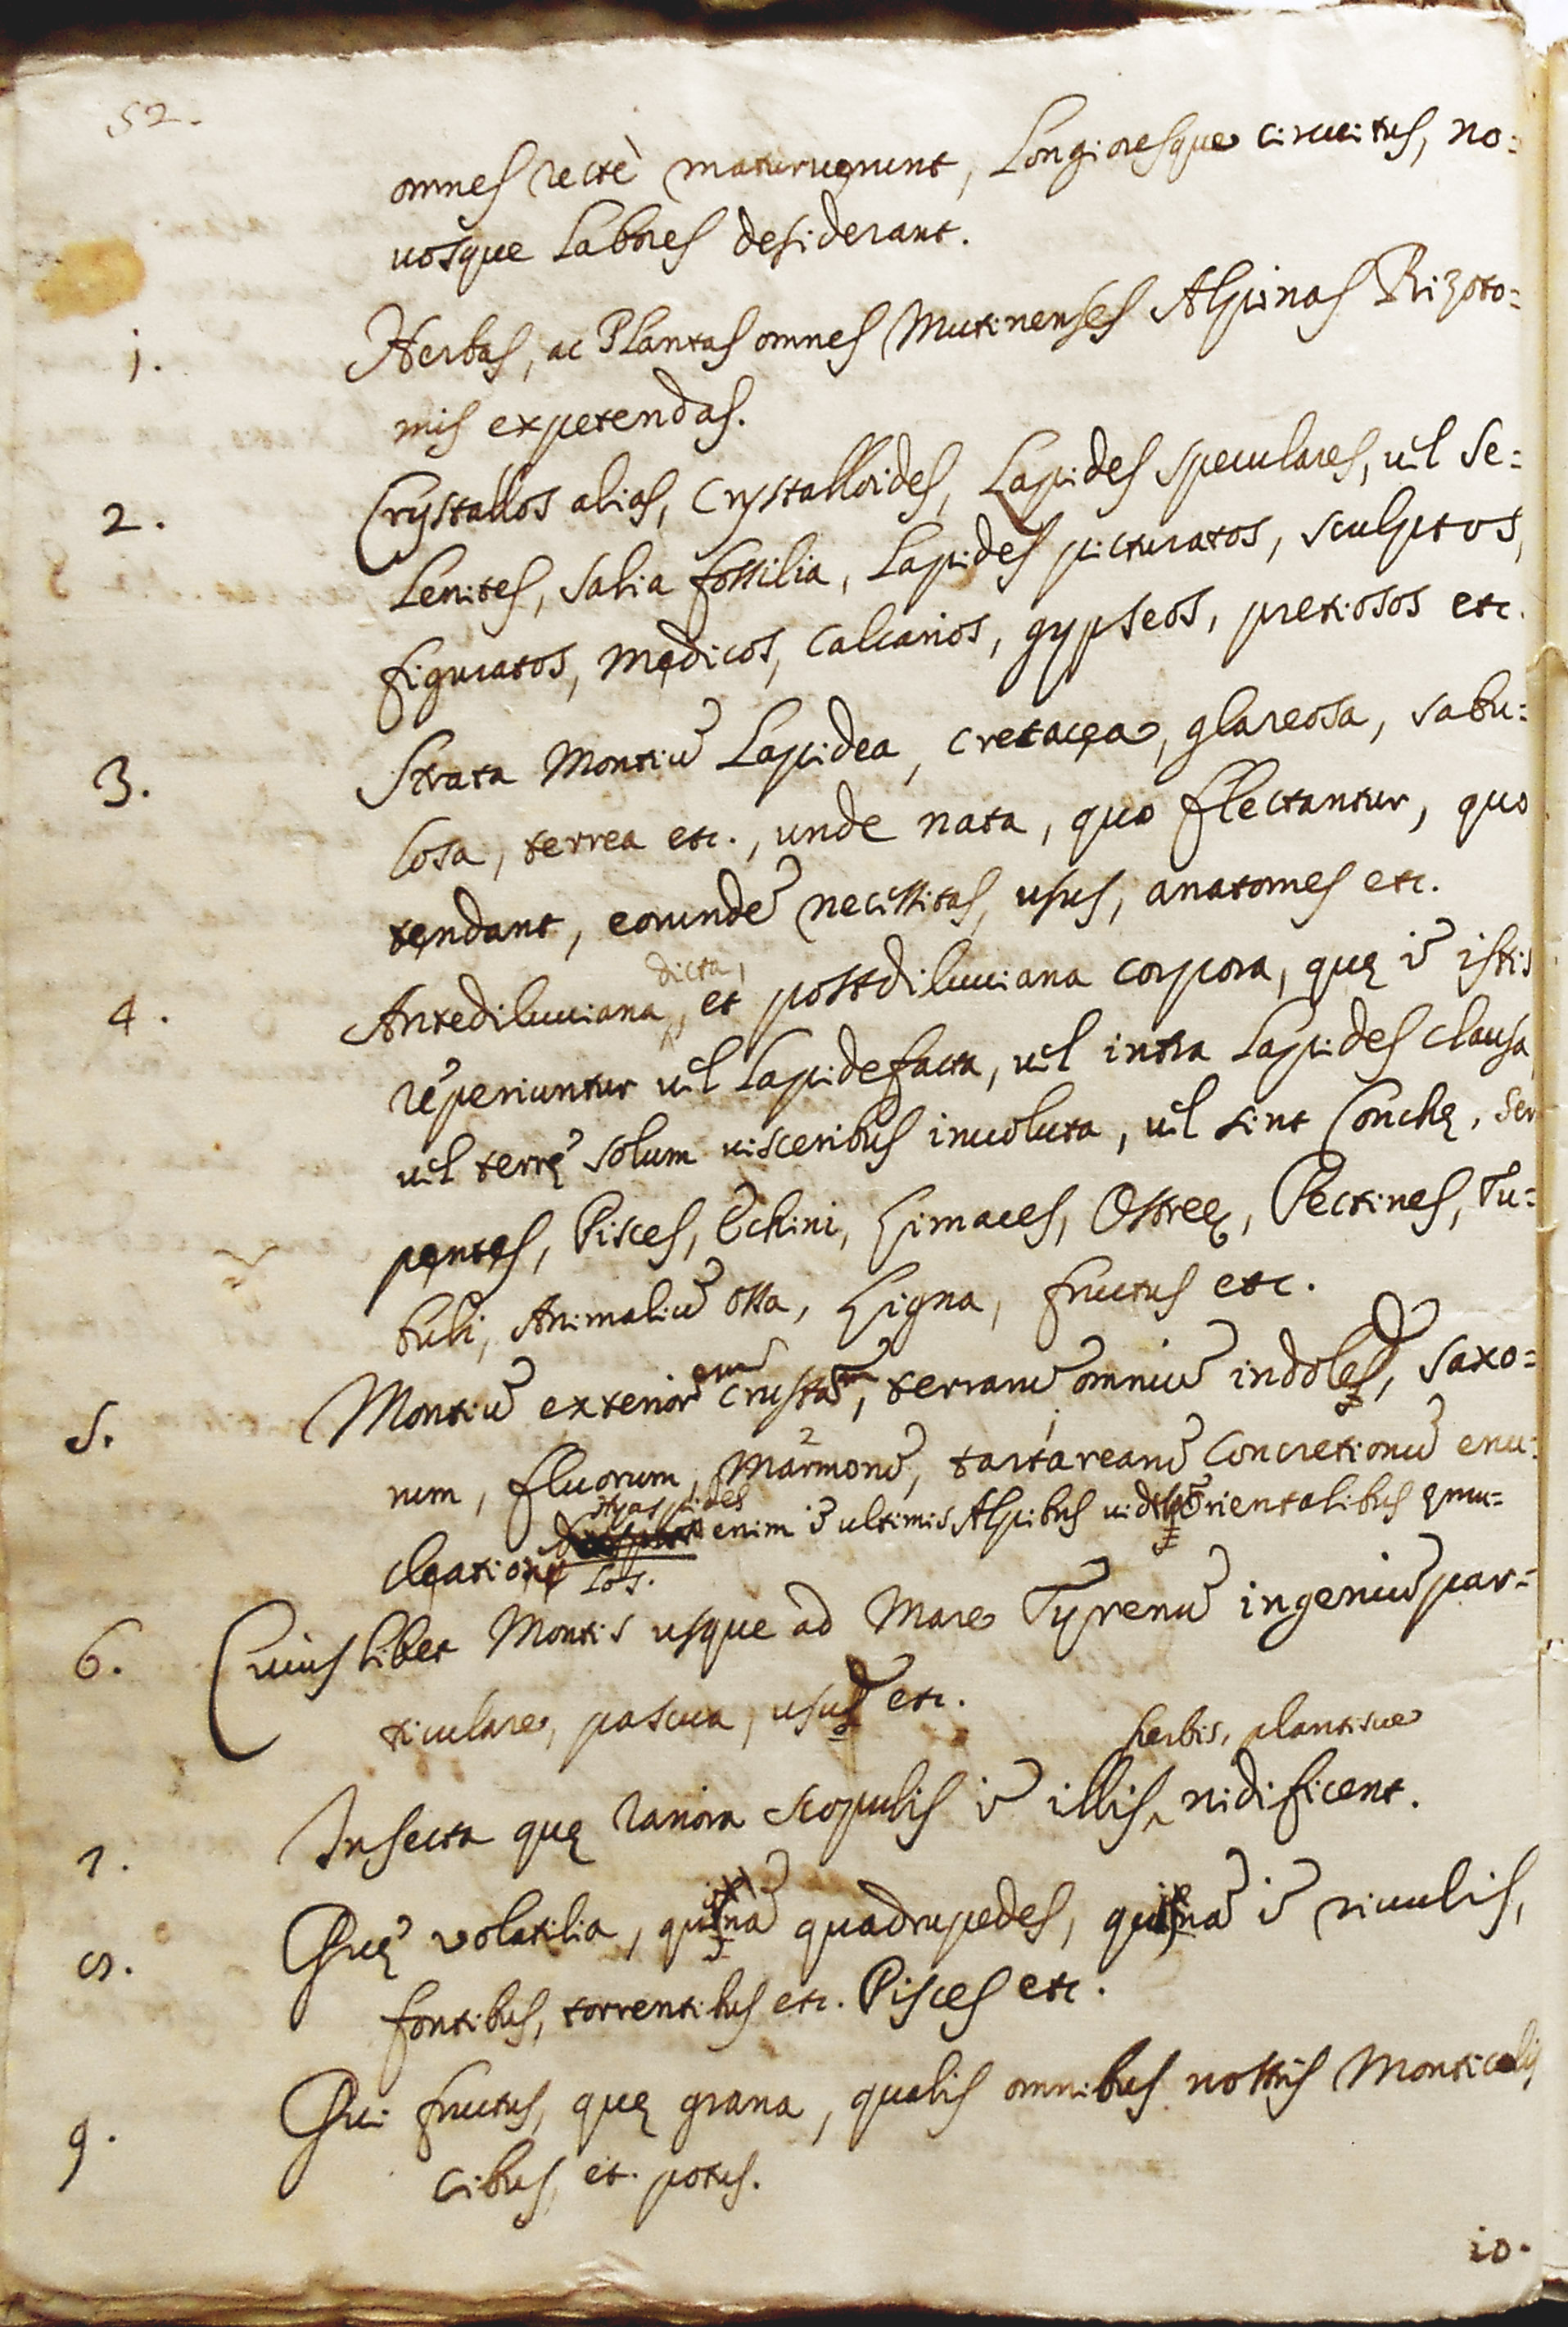 52.
omnes rectè maturuerunt, Longioresque circuitus, no=
uosque Labores desiderant.
1. Herbas, ac Plantas omnes Mutinenses Alpinas Rizoto=
mis expetendas.
2. Crystallos alias, Crystalloides, Lapides speculares, uel Se=
Lenites, Salia fossilia, Lapides picturatos, sculptos,
figuratos, medicos, calcarios, gypseos, pretiosos etc.
3. Strata Montiū Lapidea, cretacea, glareosa, sabu=
Losa, terrea etc., unde nata, quo flectantur, quo
tendant, eorundē necessitas, usus, anatomes etc.
dicta,
4. Antediluuiana, et postdiluuiana corpora, quę ī istis
reperiuntur uel Lapidefacta, uel intra Lapides clausa
uel terrę solum uisceribus inuoluta, uel sint Conchę, Ser
pentes, Pisces, Echini, Limaces, Ostreę, Pectines, Tu=
buli, Animaliū ossa, Ligna, fructus etc.
5. Montiū exteriorem crustam, terrarū omniū indolē, saxo=
2 1
rum, fluorum, Marmorū, tartarearū Concretionū enu=
Hyaspides
cleationē enim ī ultimis Alpibus uidi Orientalibus ęmu=
Los.
6. Cuiuslibet Montis usque ad Mare Tyrenū ingeniū par=
ticulare, pascua, usū etc.
herbis, plantisue
7. Insecta quę rariora scopulis ī illis nidificent.
8. Quę volatilia, quinā quadrupedes, quinā ī riuulis,
fontibus, torrentibus etc. Pisces etc.
9. Qui fructus, quę grana, qualis omnibus nostris Monticolis
cibus, et potus.
10.